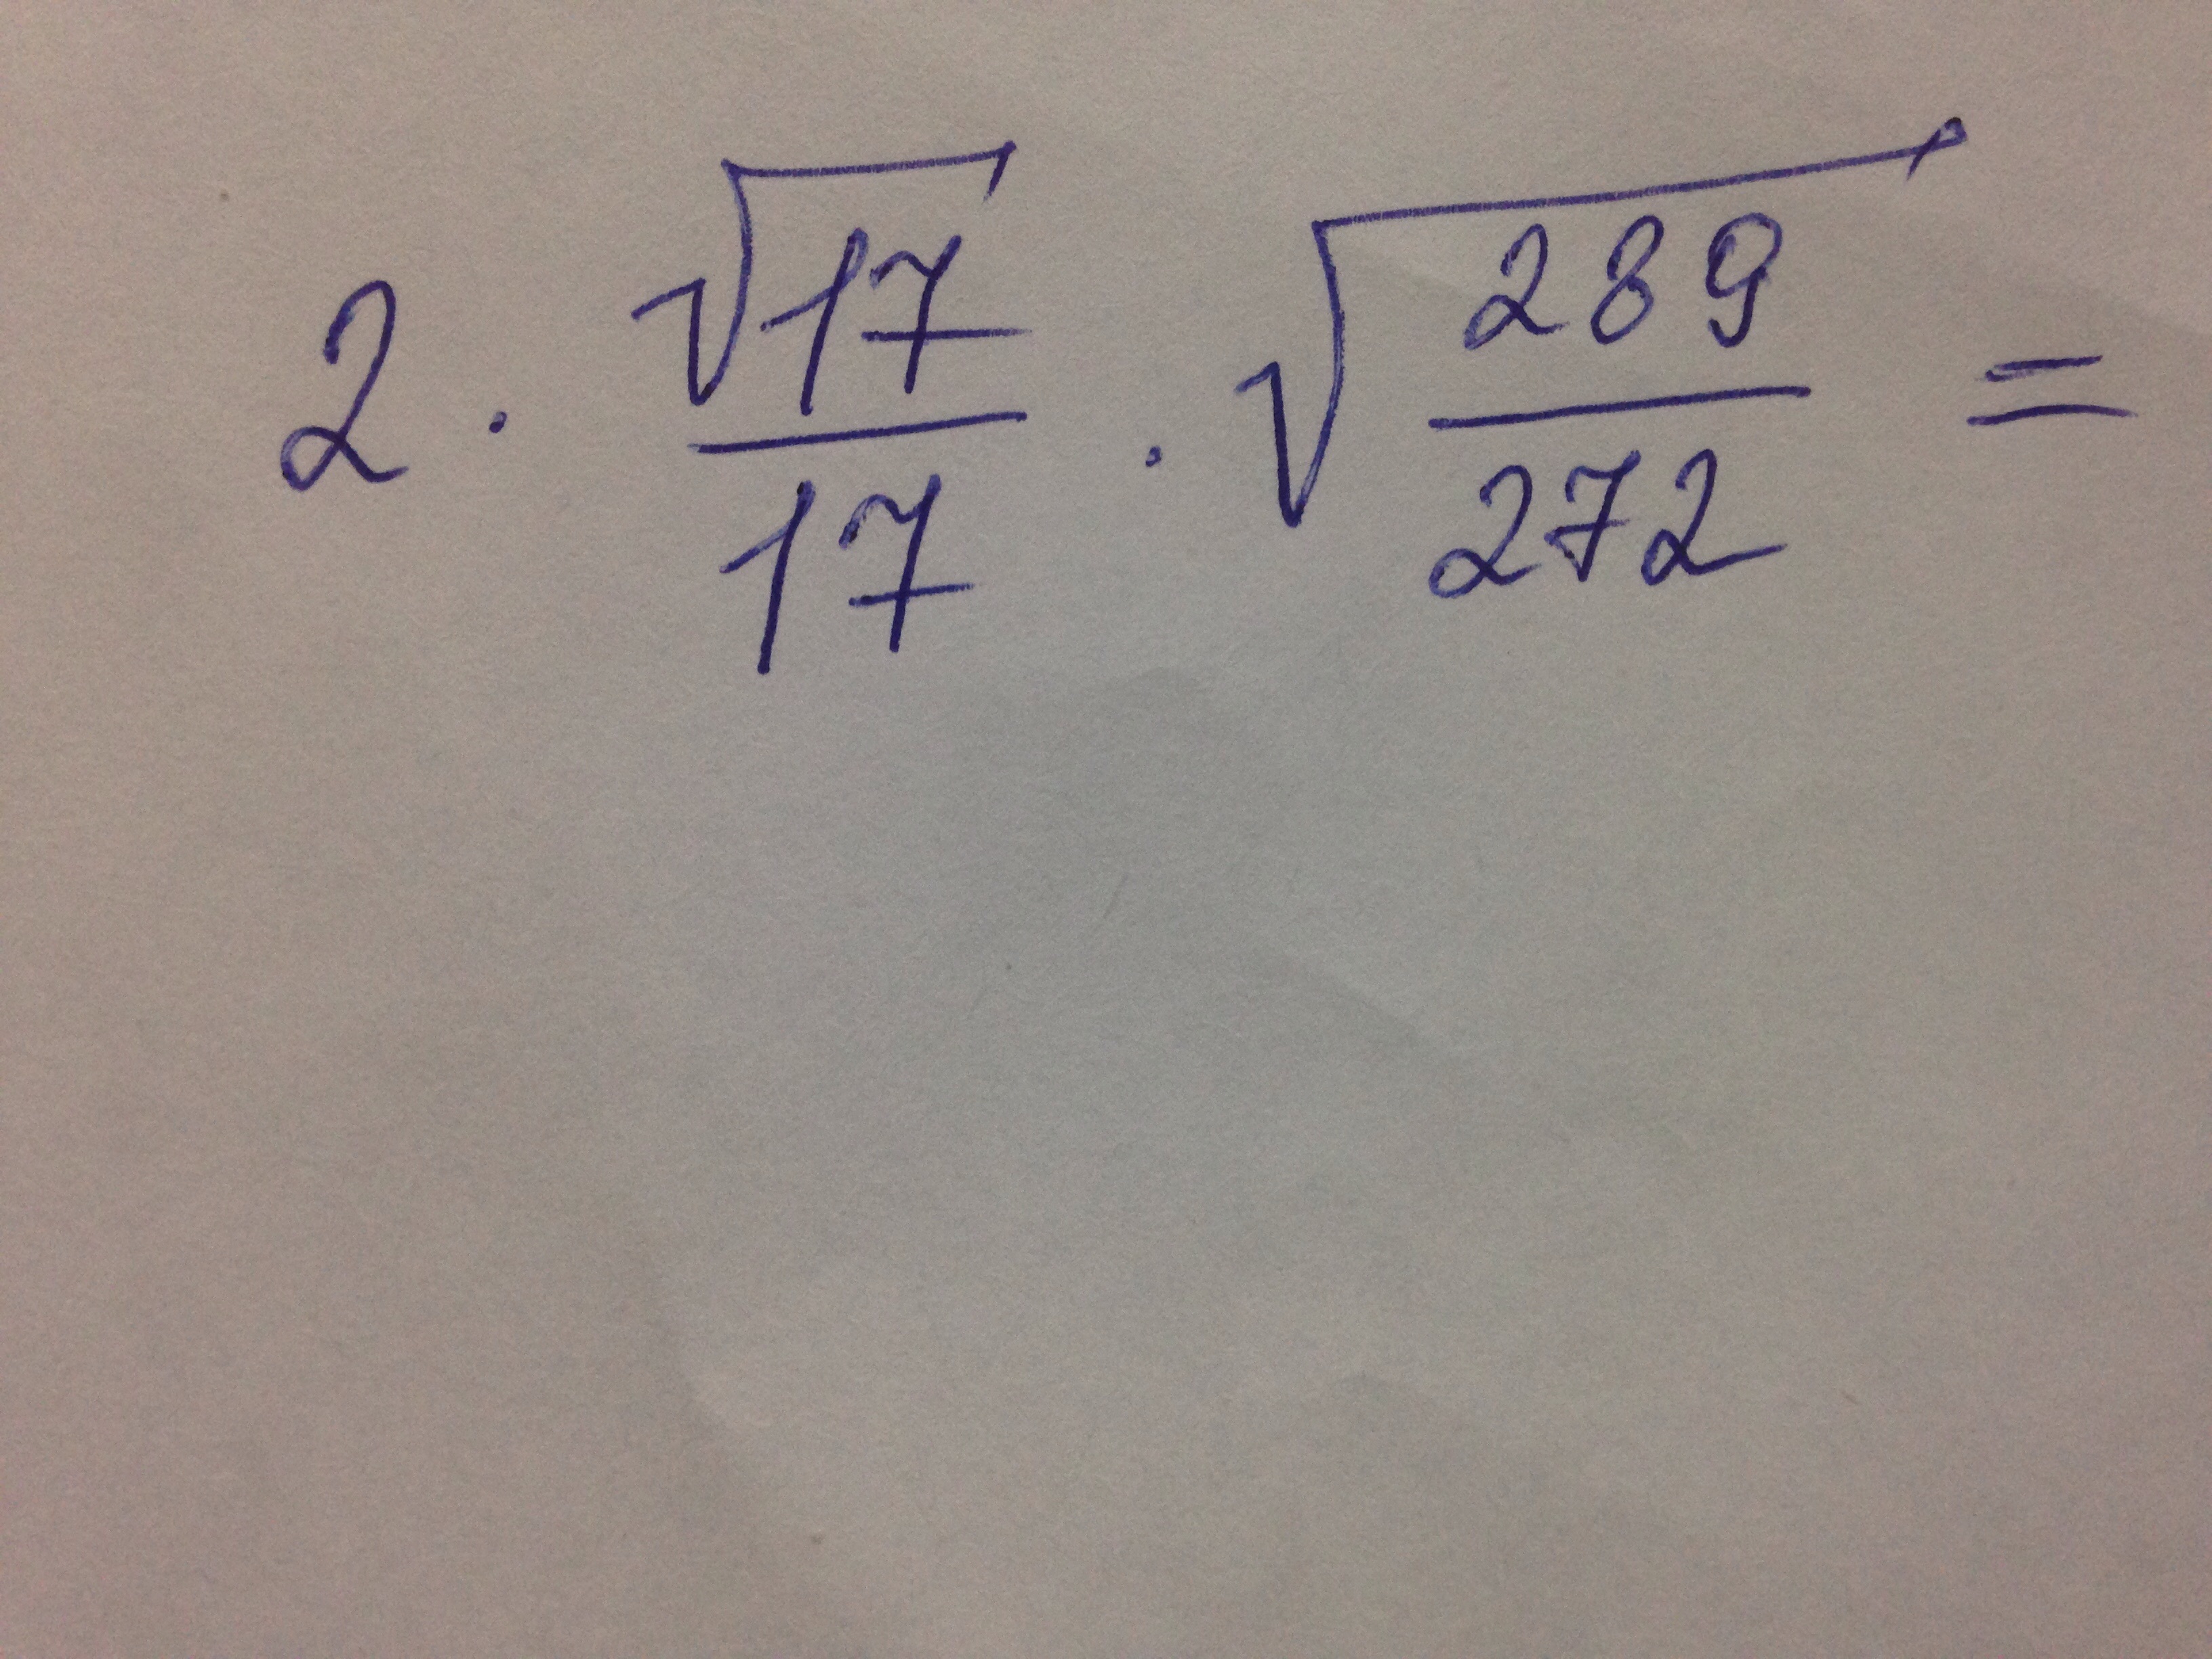 2 · √17/17 · √(289/272) =